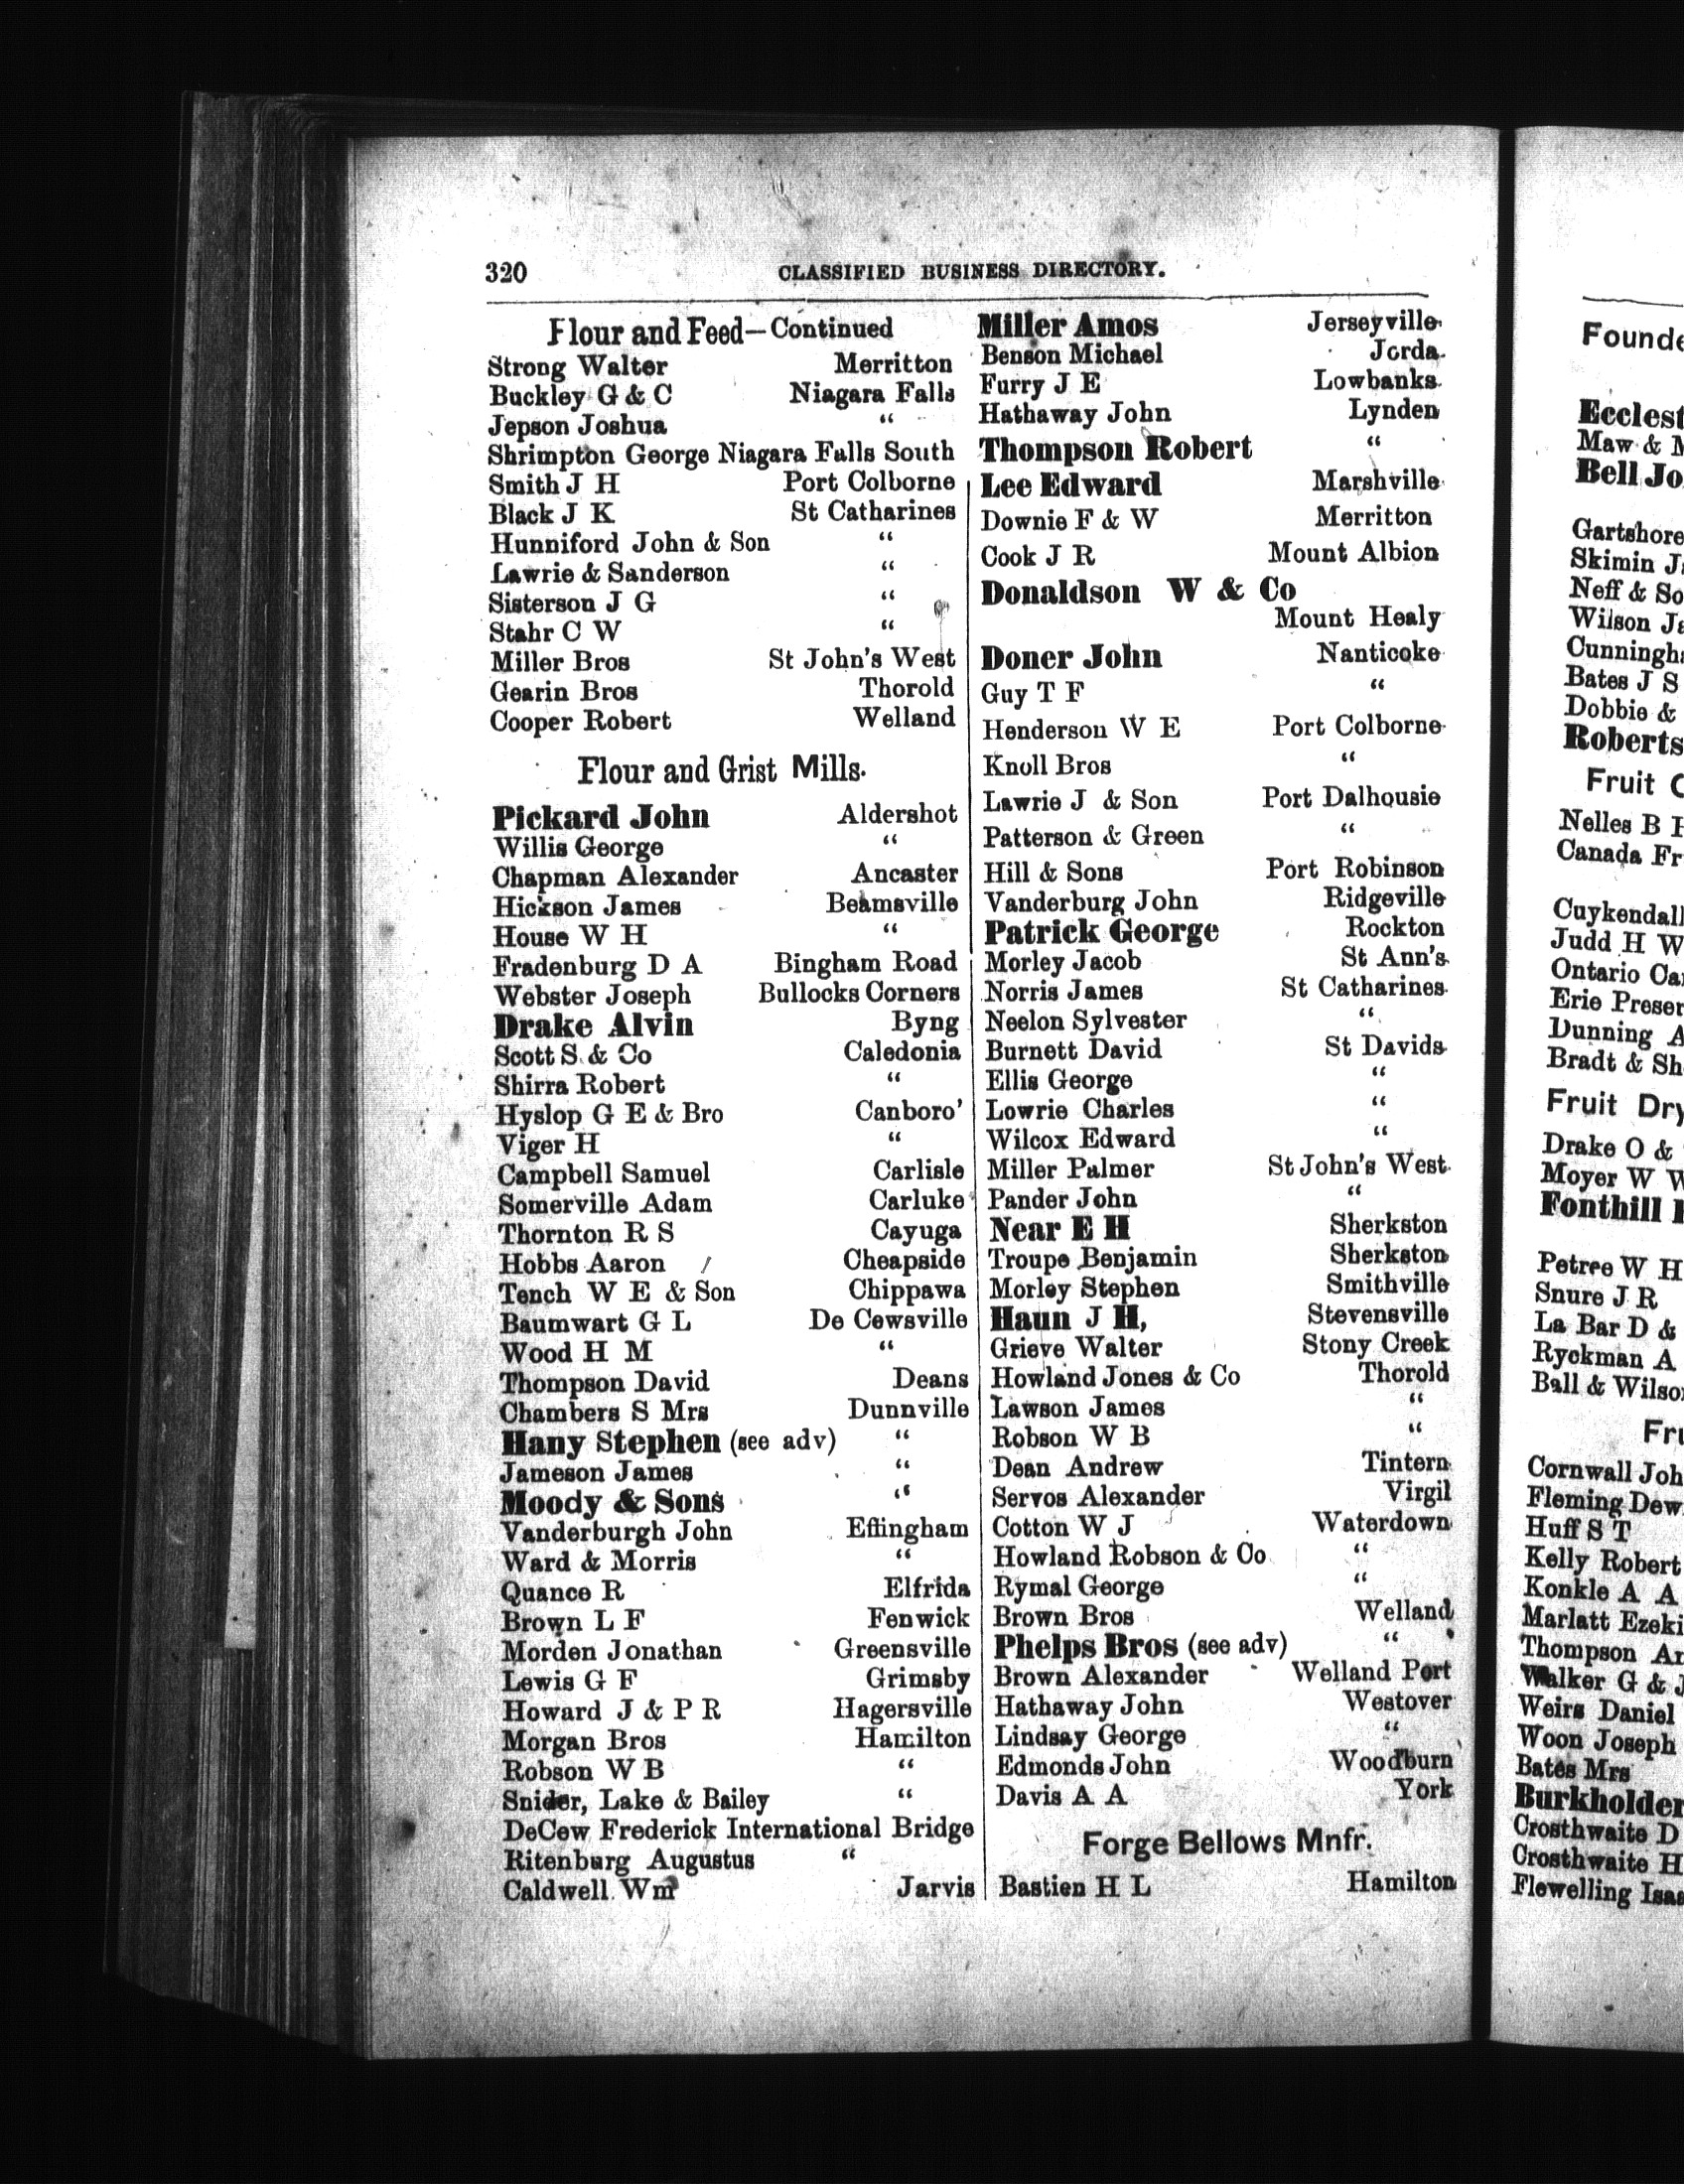 320 CLASSIFIED BUSINESS DIRECTORY.
Flour and Feed—Continued
Strong Walter Merritton
Buckley G & C Niagara Falls
Jepson Joshua "
Shrimpton George Niagara Falls South
Smith J H Port Colborne
Black J K St Catharines
Hunniford John & Son "
Lawrie & Sanderson "
Sisterson J G "
Stahr C W "
Miller Bros St John's West
Gearin Bros Thorold
Cooper Robert Welland
Flour and Grist Mills.
Pickard John Aldershot
Willis George "
Chapman Alexander Ancaster
Hickson James Beamsville
House W H "
Fradenburg D A Bingham Road
Webster Joseph Bullocks Corners
Drake Alvin Byng
Scott S & Co Caledonia
Shirra Robert "
Hyslop G E & Bro Canboro'
Viger H "
Campbell Samuel Carlisle
Somerville Adam Carluke
Thornton R S Cayuga
Hobbs Aaron Cheapside
Tench W E & Son Chippawa
Baumwart G L De Cewsville
Wood H M "
Thompson David Deans
Chambers S Mrs Dunnville
Hany Stephen (see adv) "
Jameson James "
Moody & Sons "
Vanderburgh John Effingham
Ward & Morris "
Quance R Elfrida
Brown L F Fenwick
Morden Jonathan Greensville
Lewis G F Grimsby
Howard J & P R Hagersville
Morgan Bros Hamilton
Robson W B "
Snider, Lake & Bailey "
DeCew Frederick International Bridge
Ritenburg Augustus "
Caldwell Wm Jarvis
Miller Amos Jerseyville
Benson Michael Jorda
Furry J E Lowbanks
Hathaway John Lynden
Thompson Robert "
Lee Edward Marshville
Downie F & W Merritton
Cook J R Mount Albion
Donaldson W & Co
Mount Healy
Doner John Nanticoke
Guy T F "
Henderson W E Port Colborne
Knoll Bros "
Lawrie J & Son Port Dalhousie
Patterson & Green "
Hill & Sons Port Robinson
Vanderburg John Ridgeville
Patrick George Rockton
Morley Jacob St Ann's
Norris James St Catharines
Neelon Sylvester "
Burnett David St Davids
Ellis George "
Lowrie Charles "
Wilcox Edward "
Miller Palmer St John's West
Pander John "
Near E H Sherkston
Troupe Benjamin Sherkston
Morley Stephen Smithville
Haun J H, Stevensville
Grieve Walter Stony Creek
Howland Jones & Co Thorold
Lawson James "
Robson W B "
Dean Andrew Tintern
Servos Alexander Virgil
Cotton W J Waterdown
Howland Robson & Co "
Rymal George "
Brown Bros Welland
Phelps Bros (see adv) "
Brown Alexander Welland Port
Hathaway John Westover
Lindsay George "
Edmonds John Woodburn
Davis A A York
Forge Bellows Mnfr.
Bastien H L Hamilton
Founde
Ecclest
Maw & M
Bell Jo
Gartshore
Skimin J
Neff & So
Wilson Ja
Cunningha
Bates J S
Dobbie &
Roberts
Fruit C
Nelles B
Canada Fr
Cuykendall
Judd H W
Ontario Ca
Erie Preser
Dunning A
Bradt & Sh
Fruit Dry
Drake O &
Moyer W W
Fonthill
Petree W H
Snure J R
La Bar D &
Ryckman A
Ball & Wilso
Fru
Cornwall Joh
Fleming Dew
Huff S T
Kelly Robert
Konkle A A
Marlatt Ezeki
Thompson Ar
Walker G & J
Weirs Daniel
Woon Joseph
Bates Mrs
Burkholder
Crosthwaite D
Crosthwaite H
Flewelling Isaa